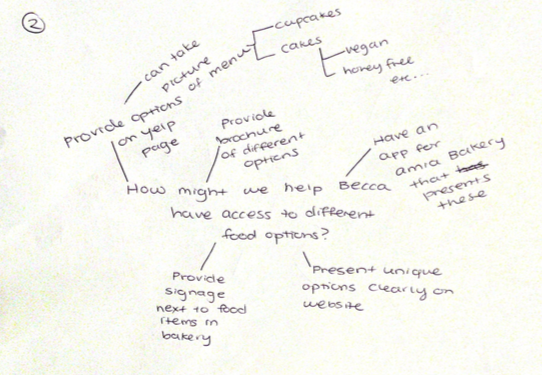 2
can take
picture
of menu
cupcakes
cakes
vegan
honey free
etc...
Provide options
on yelp
page
Provide
brochure
of different
options
Have an
app for
amia Bakery
that has
presents
these
How might we help Becca
have access to different
food options?
Provide
signage
next to food
items in
bakery
Present unique
options clearly on
website